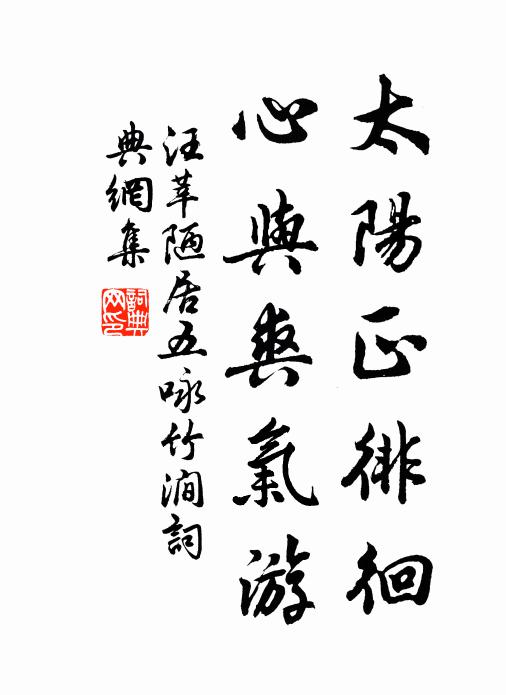 太陽正徘徊
心與爽氣游
汪莘陋居五咏竹澗詞
典網集
詞典網印